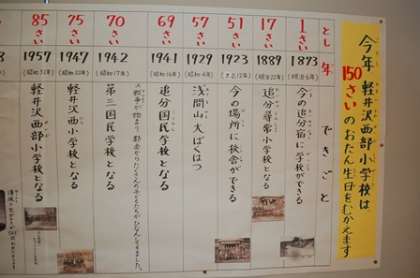 今年 軽井沢西部小学校は
150さいのおたん生日をむかえます
とし 年 できごと
1さい 1873 (明治6年) 今の追分宿に学校ができる
17さい 1889 (明治22年) 追分尋常小学校となる
51さい 1923 (大正12年) 今の場所に校舎ができる
57さい 1929 (昭和4年) 浅間山大ばくはつ
69さい 1941 (昭和16年) 追分国民学校となる
70さい 1942 (昭和17年) 第三国民学校となる
75さい 1947 (昭和22年) 軽井沢西小学校となる
85さい 1957 (昭和32年) 軽井沢西部小学校となる